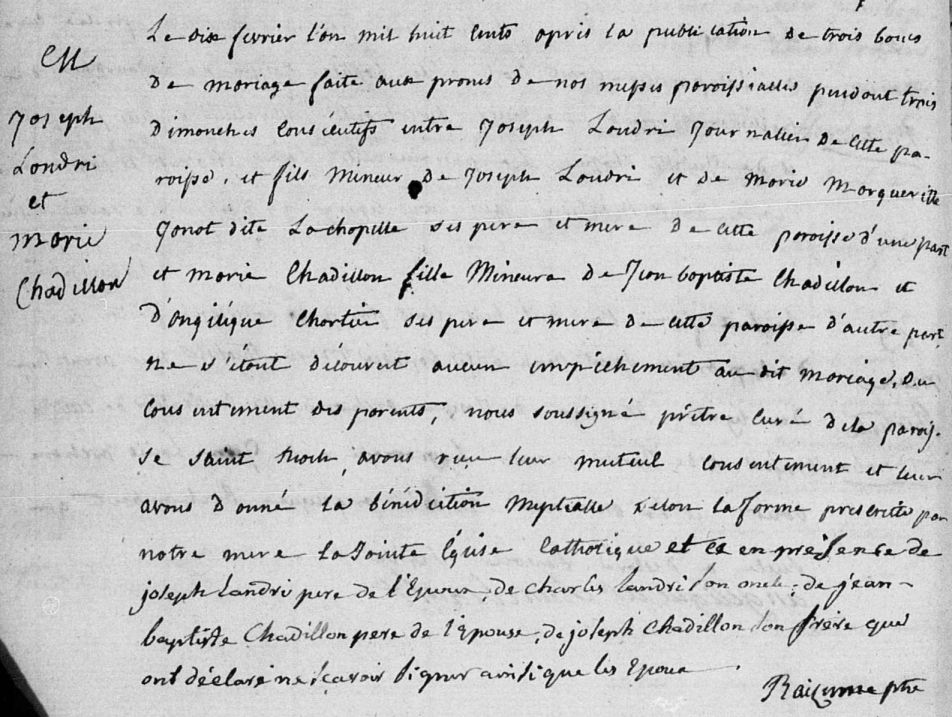 M
Joseph
Landri
et
marie
Chadillon
Le dix fevrier l'an mil huit cents après la publication de trois bancs
de mariage faite aux prones de nos messes paroissialles pendant trois
Dimanches consécutifs entre Joseph Landri Journallier de cette pa-
roisse, et fils Mineur de Joseph Landri et de marie Margueritte
Janot dite Lachapelle ses pere et mere de cette paroisse d'une part
et marie Chadillon fille Mineure de Jean baptiste Chadillon et
D'angélique Chartier ses pere et mere de cette paroisse d'autre part
ne s'étant découvert aucun empêchement au dit mariage, du
consentement des parents, nous soussigné prêtre curé de la parois-
se saint Roch, avons reçu leur mutuel consentement et leur
avons donné la bénédiction Nuptialle selon la forme prescrite par
notre mere la Sainte Eglise Catholique et ce en présence de
joseph Landri pere de l'Epoux, de charles Landri son oncle, de jean-
baptiste Chadillon pere de l'Epouse, de joseph Chadillon son frère qui
ont déclaré ne sçavoir signer ainsi que les Epoux.
Raizenne ptre